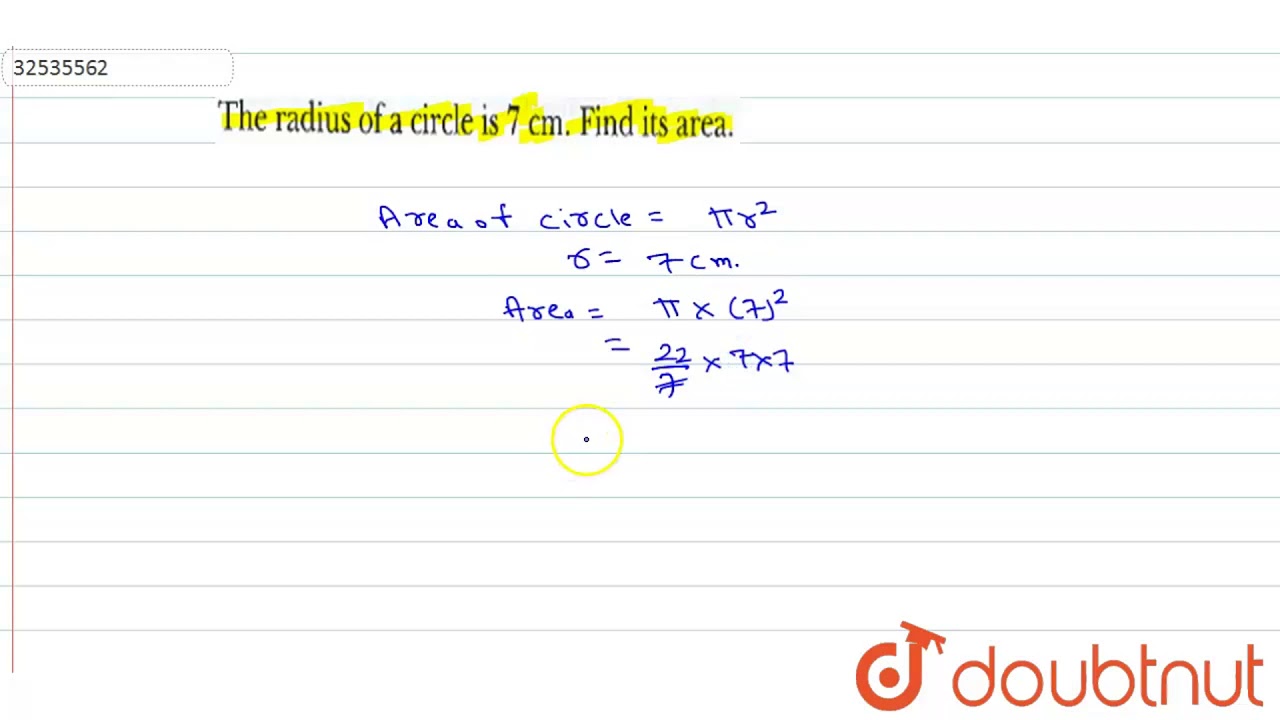 32535562
The radius of a circle is 7 cm. Find its area.
Area of circle = πr²
r = 7 cm.
Area = π × (7)²
= 22/7 × 7 × 7
doubtnut